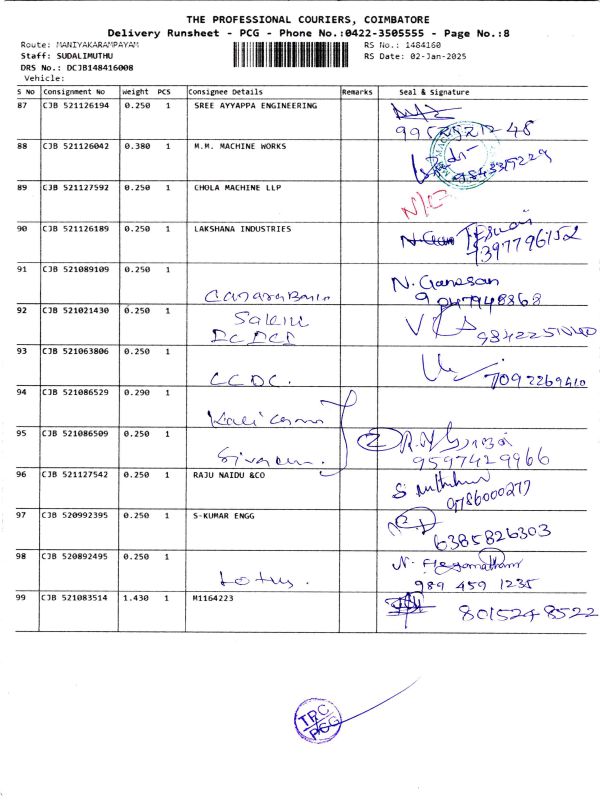 THE PROFESSIONAL COURIERS, COIMBATORE
Delivery Runsheet - PCG - Phone No.:0422-3505555 - Page No.:8
Route: MANIYAKARAMPAYAM RS No.: 1484160
Staff: SUDALIMUTHU RS Date: 02-Jan-2025
DRS No.: DCJB148416008
Vehicle:
S No Consignment No Weight PCS Consignee Details Remarks Seal & Signature
87 CJB 521126194 0.250 1 SREE AYYAPPA ENGINEERING
88 CJB 521126042 0.380 1 M.M. MACHINE WORKS
89 CJB 521127592 0.250 1 CHOLA MACHINE LLP
90 CJB 521126189 0.250 1 LAKSHANA INDUSTRIES 7397796152
91 CJB 521089109 0.250 1 N. Ganesan
92 CJB 521021430 0.250 1 Salem
93 CJB 521063806 0.250 1 CCDC. 7092269410
94 CJB 521086529 0.290 1
95 CJB 521086509 0.250 1 2 9597429966
96 CJB 521127542 0.250 1 RAJU NAIDU &CO 9786000277
97 CJB 520992395 0.250 1 S-KUMAR ENGG 6385826303
98 CJB 520892495 0.250 1 Lotus. 989 459 1235
99 CJB 521083514 1.430 1 M1164223 8015248522
TPC
PCG